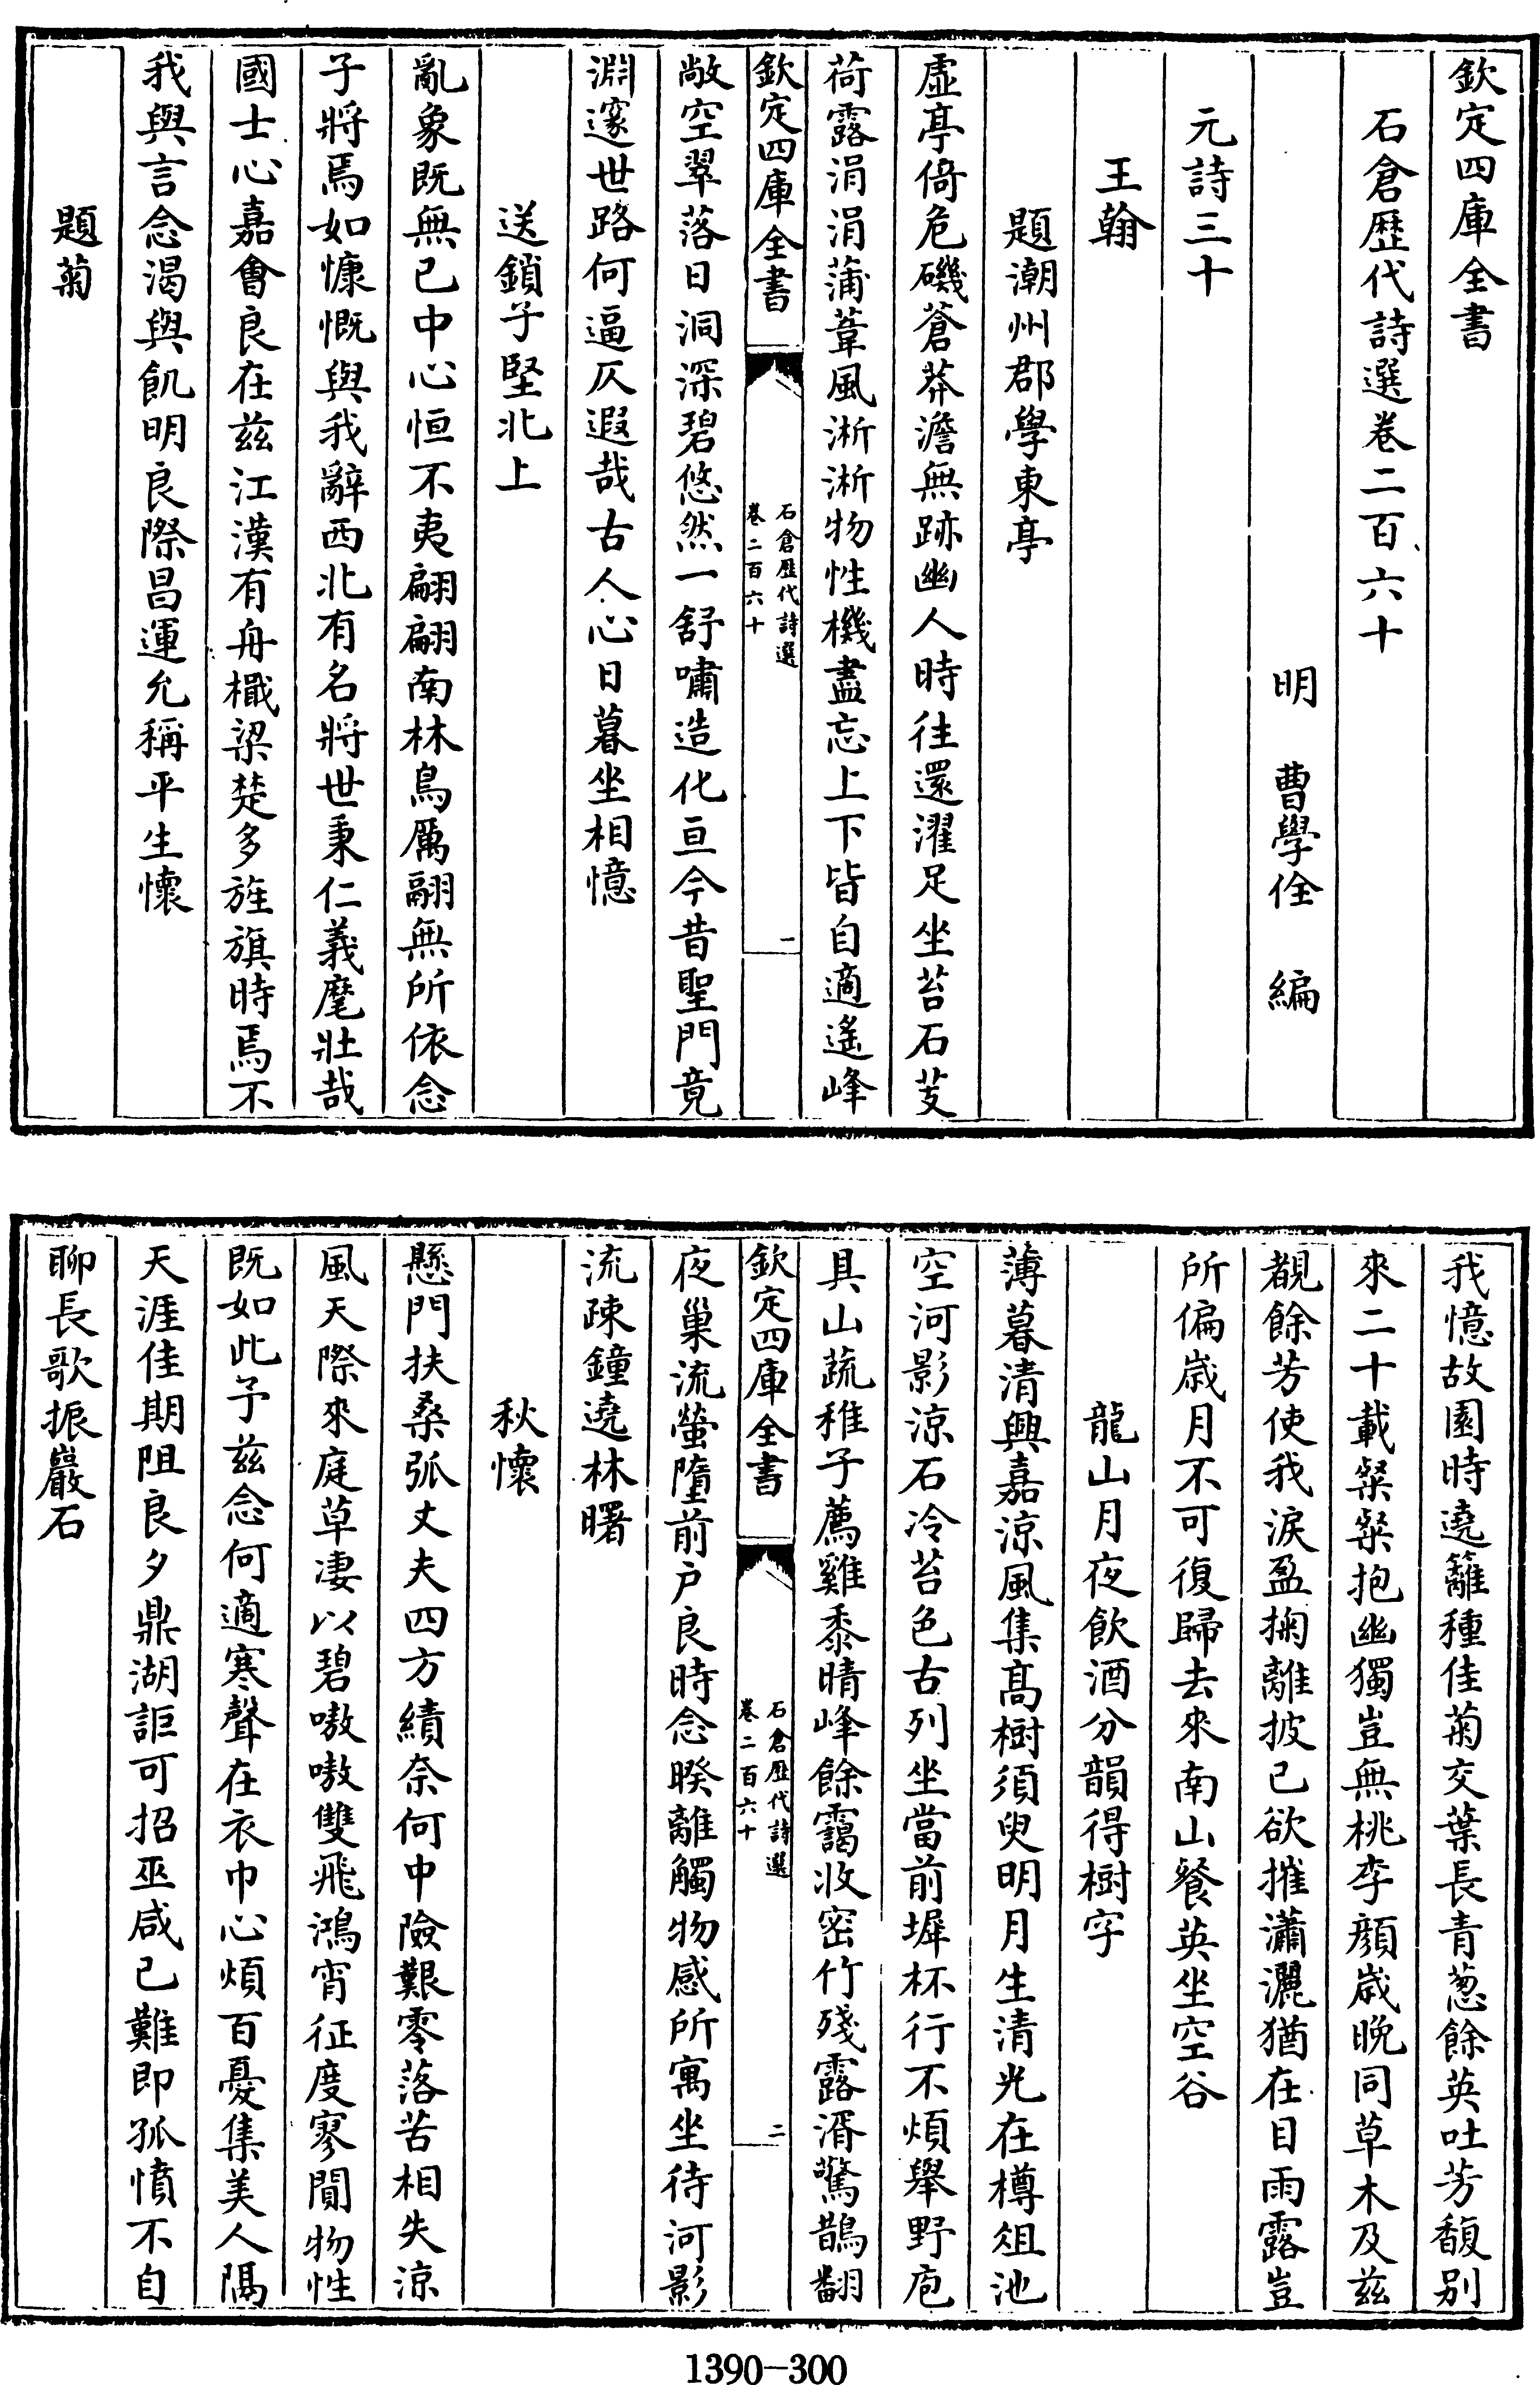 欽定四庫全書
石倉歷代詩選卷二百六十
明 曹學佺 編
元詩三十
王翰
題潮州郡學東亭
虛亭倚危磯蒼莽澹無跡幽人時往還濯足坐苔石芰
荷露涓涓蒲葦風淅淅物性機盡忘上下皆自適遙峰
欽定四庫全書
石倉歷代詩選
卷二百六十
一
敞空翠落日洞深碧悠然一舒嘯造化亘今昔聖門竟
淵邃世路何逼仄遐哉古人心日暮坐相憶
送鎖子堅北上
亂象既無已中心恒不夷翩翩南林鳥厲翮無所依念
子將焉如慷慨與我辭西北有名將世秉仁義麾壯哉
國士心嘉會良在兹江漢有舟檝梁楚多旌旗時焉不
我與言念渴與飢明良際昌運允稱平生懷
題菊
我憶故園時遶籬種佳菊交葉長青葱餘英吐芳馥别
來二十載粲粲抱幽獨豈無桃李顔歲晚同草木及兹
覩餘芳使我淚盈掬離披已欲摧瀟灑猶在目雨露豈
所偏歲月不可復歸去來南山餐英坐空谷
龍山月夜飲酒分韻得樹字
薄暮清興嘉涼風集高樹須臾明月生清光在樽俎池
空河影涼石冷苔色古列坐當前墀杯行不煩舉野庖
具山蔬稚子薦雞黍晴峰餘靄收密竹殘露湑驚鵲翻
欽定四庫全書
石倉歷代詩選
卷二百六十
二
夜巢流螢墮前户良時念暌離觸物感所寓坐待河影
流疎鐘遶林曙
秋懷
懸門扶桑弧丈夫四方績奈何中險艱零落苦相失涼
風天際來庭草凄以碧嗷嗷雙飛鴻宵征度寥閴物性
既如此予兹念何適寒聲在衣巾心煩百憂集美人隔
天涯佳期阻良夕鼎湖詎可招巫咸已難即孤憤不自
聊長歌振巖石
1390-300